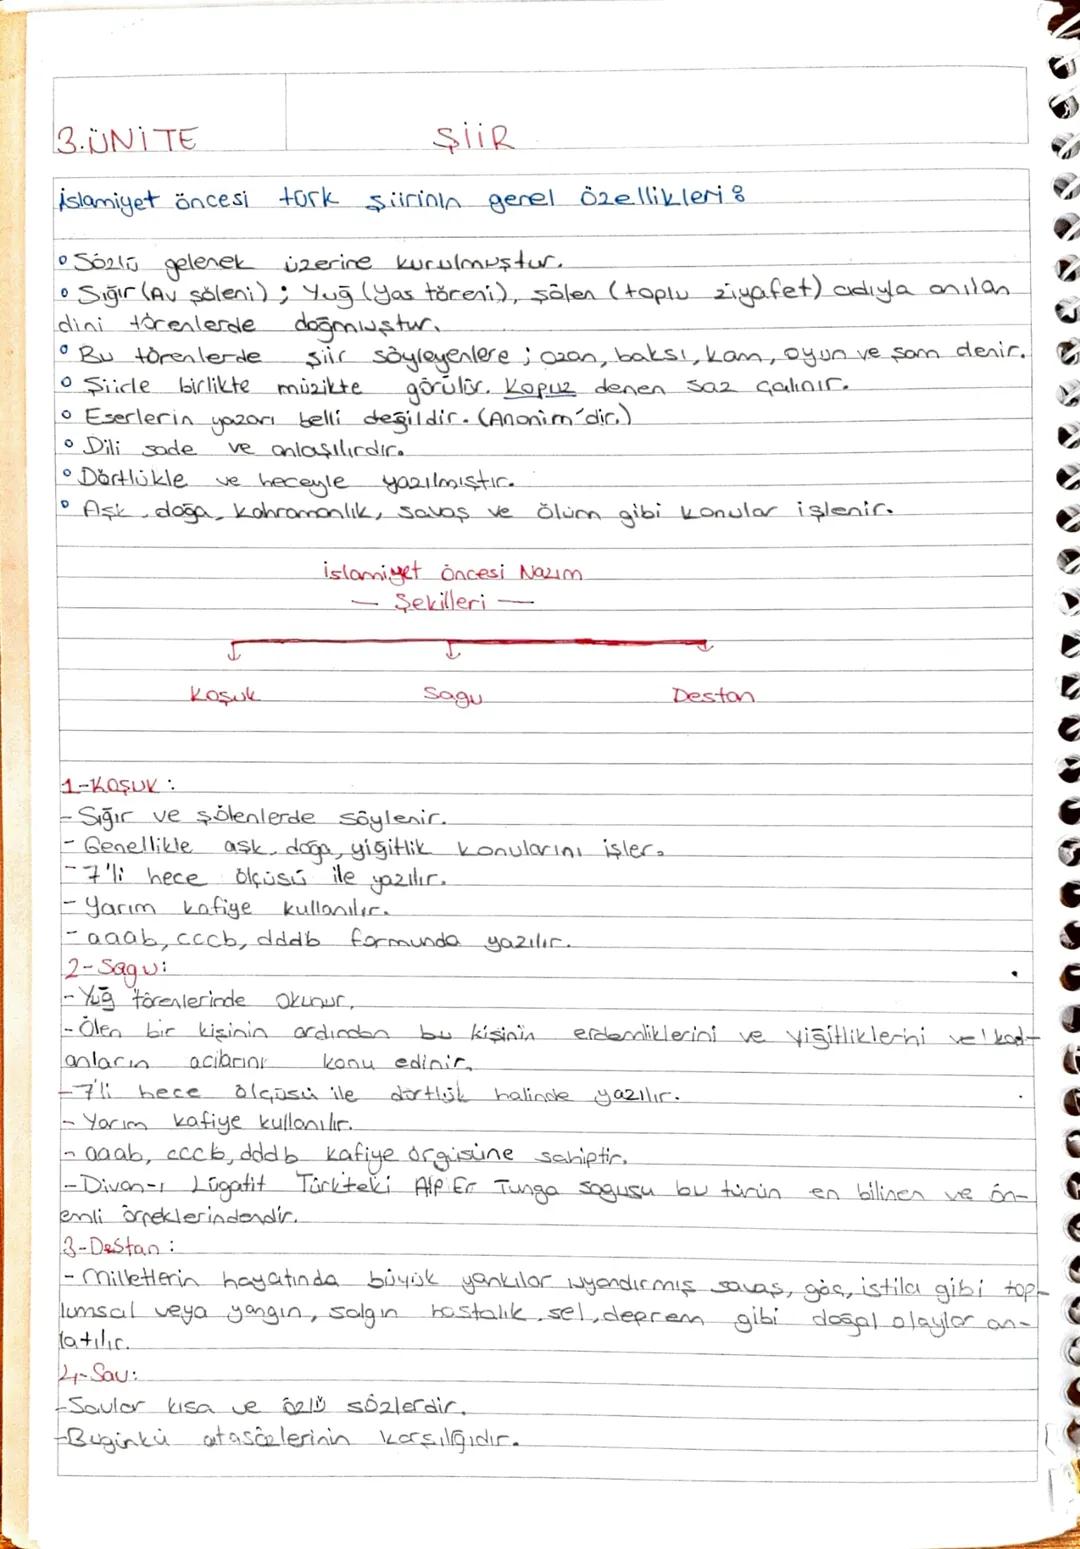 3.ÜNİTE ŞİİR
İslamiyet öncesi türk şiirinin genel özellikleri:
° Sözlü gelenek üzerine kurulmuştur.
° Sığır (Av şöleni); Yuğ (Yas töreni), şölen (toplu ziyafet) adıyla anılan
dini törenlerde doğmuştur.
° Bu törenlerde şiir söyleyenlere; ozan, baksı, kam, oyun ve şam denir.
° Şiirle birlikte müzikte görülür. Kopuz denen saz çalınır.
° Eserlerin yazarı belli değildir. (Anonim'dir.)
° Dili sade ve anlaşılırdır.
° Dörtlükle ve heceyle yazılmıştır.
° Aşk, doğa, kahramanlık, savaş ve ölüm gibi konular işlenir.
İslamiyet Öncesi Nazım
— Şekilleri —
Koşuk Sagu Destan
1-Koşuk:
- Sığır ve şölenlerde söylenir.
- Genellikle aşk, doğa, yiğitlik konularını işler.
- 7'li hece ölçüsü ile yazılır.
- Yarım kafiye kullanılır.
- aaab, cccb, dddb formunda yazılır.
2- Sagu:
- Yuğ törenlerinde okunur.
- Ölen bir kişinin ardından bu kişinin erdemliklerini ve yiğitliklerini ve kal-
anların acılarını konu edinir.
- 7'li hece ölçüsü ile dörtlük halinde yazılır.
- Yarım kafiye kullanılır.
- aaab, cccb, dddb kafiye örgüsüne sahiptir.
- Divan-ı Lügatit Türkteki Alp Er Tunga sagusu bu türün en bilinen ve ön-
emli örneklerindendir.
3-Destan:
- Milletlerin hayatında büyük yankılar uyandırmış savaş, göç, istila gibi top-
lumsal veya yangın, salgın hastalık, sel, deprem gibi doğal olaylar an-
latılır.
4-Sav:
- Savlar kısa ve özlü sözlerdir.
- Bugünkü atasözlerinin karşılğıdır.